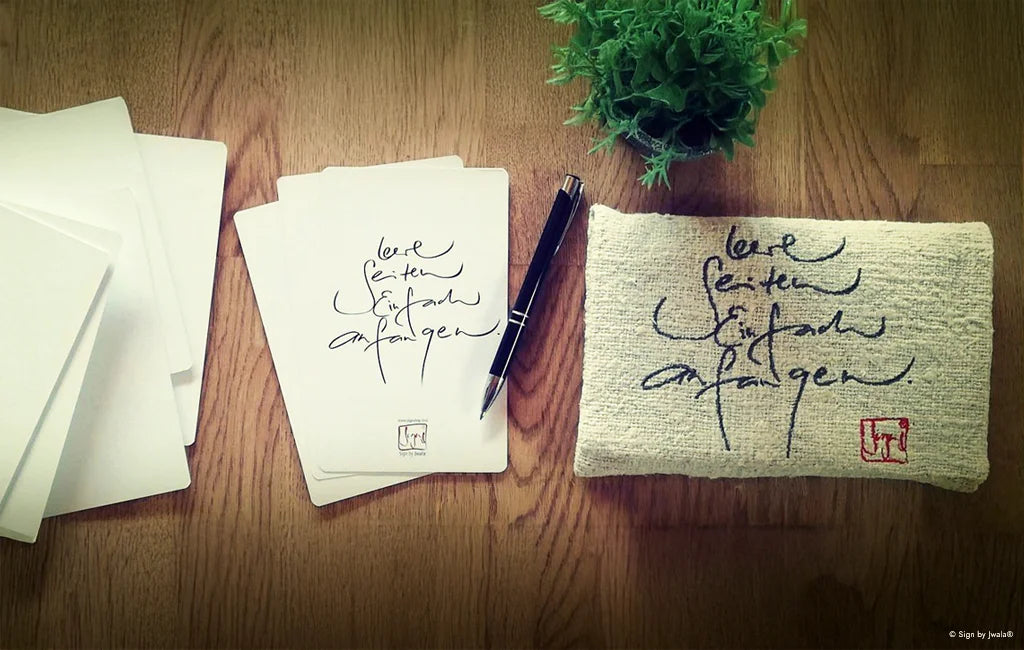 leere
Seiten
Einfach
anfangen.
Sign by Jwala
leere
Seiten
Einfach
anfangen.
© Sign by Jwala®